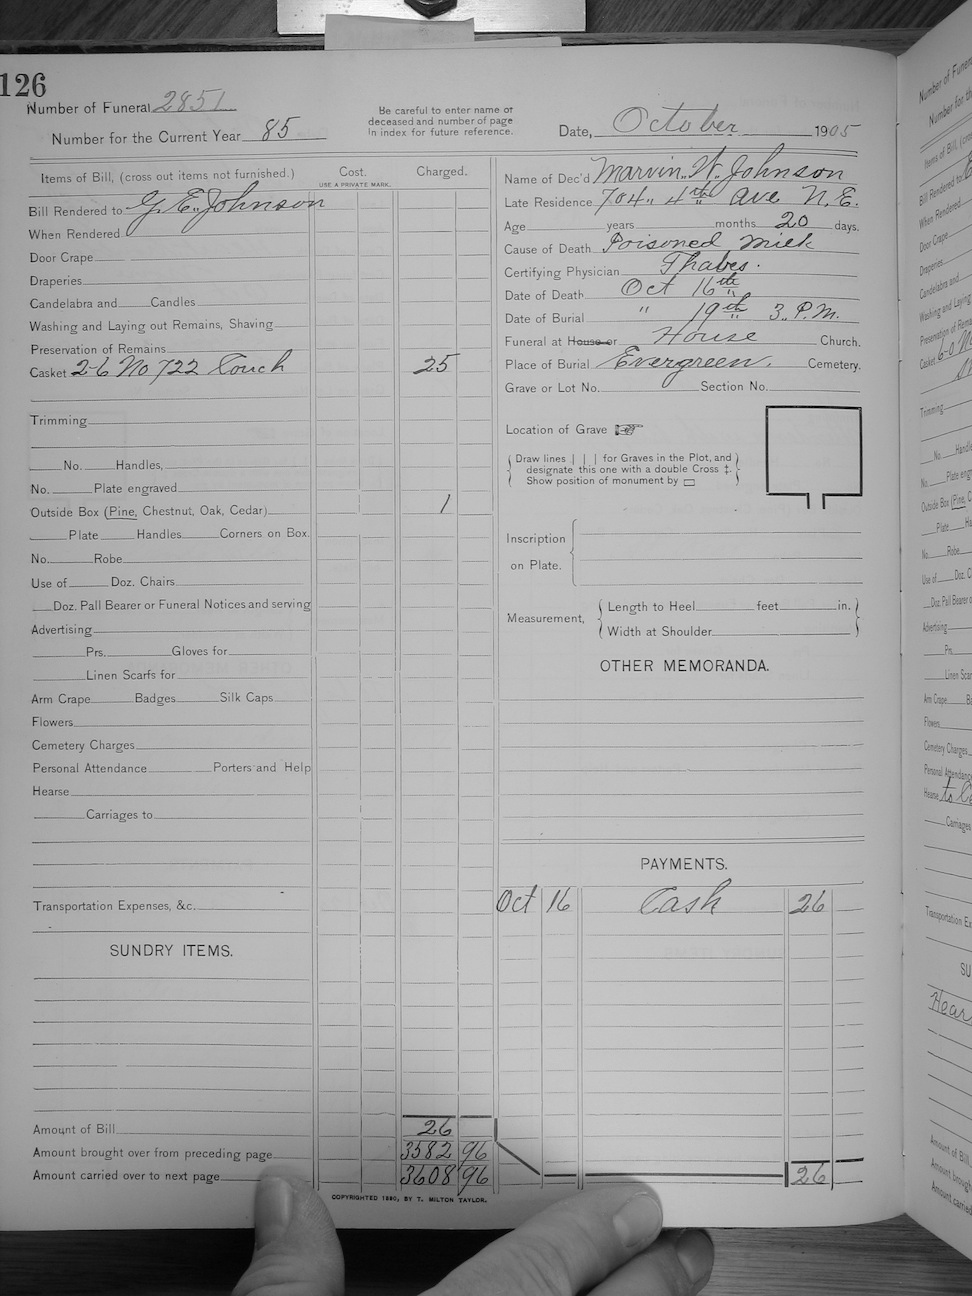 126
Number of Funeral 2851
Number for the Current Year 85
Be careful to enter name of
deceased and number of page
in index for future reference.
Date, October 1905
Items of Bill, (cross out items not furnished.) Cost. Charged.
USE A PRIVATE MARK.
Bill Rendered to G. E. Johnson
When Rendered
Door Crape
Draperies
Candelabra and Candles
Washing and Laying out Remains, Shaving
Preservation of Remains
Casket 2-6 No 722 Couch 25
Trimming
No. Handles,
No. Plate engraved
Outside Box (Pine, Chestnut, Oak, Cedar) 1
Plate Handles Corners on Box.
No. Robe
Use of Doz. Chairs
Doz. Pall Bearer or Funeral Notices and serving
Advertising
Prs. Gloves for
Linen Scarfs for
Arm Crape Badges Silk Caps
Flowers
Cemetery Charges
Personal Attendance Porters and Help
Hearse
Carriages to
Transportation Expenses, &c.
SUNDRY ITEMS.
Amount of Bill 26
Amount brought over from preceding page 3582 96
Amount carried over to next page 3608 96
COPYRIGHTED 1890, BY T. MILTON TAYLOR.
Name of Dec'd Marvin. W. Johnson
Late Residence 704., 4th ave N.E.
Age years months 20 days.
Cause of Death Poisoned milk
Certifying Physician Thabes.
Date of Death Oct 16th
Date of Burial " 19th 3. P.M.
Funeral at House or House Church.
Place of Burial Evergreen. Cemetery.
Grave or Lot No. Section No.
Location of Grave
Draw lines | | | for Graves in the Plot, and
designate this one with a double Cross ‡.
Show position of monument by
Inscription
on Plate.
Measurement, Length to Heel feet in.
Width at Shoulder
OTHER MEMORANDA.
PAYMENTS.
Oct 16 Cash 26
26